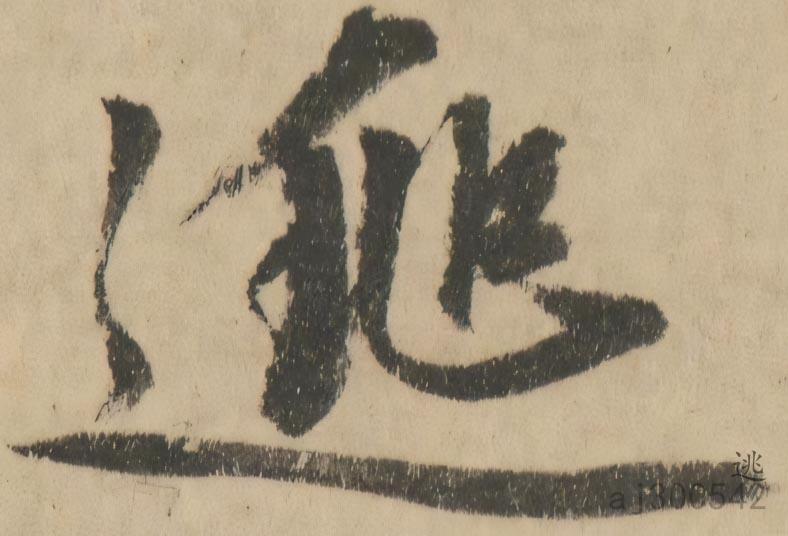 逃
逃
aj300542